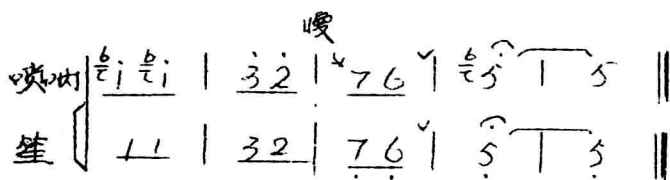 慢
唢呐 6/ṫ i̇ 6/ṫ i̇ | 3̇ 2̇ | 7 6 ˅ | 6/ṫ 5 | 5 ‖
笙 1 1 | 3 2 | 7̣ 6̣ ˅ | 5̣ | 5̣ ‖